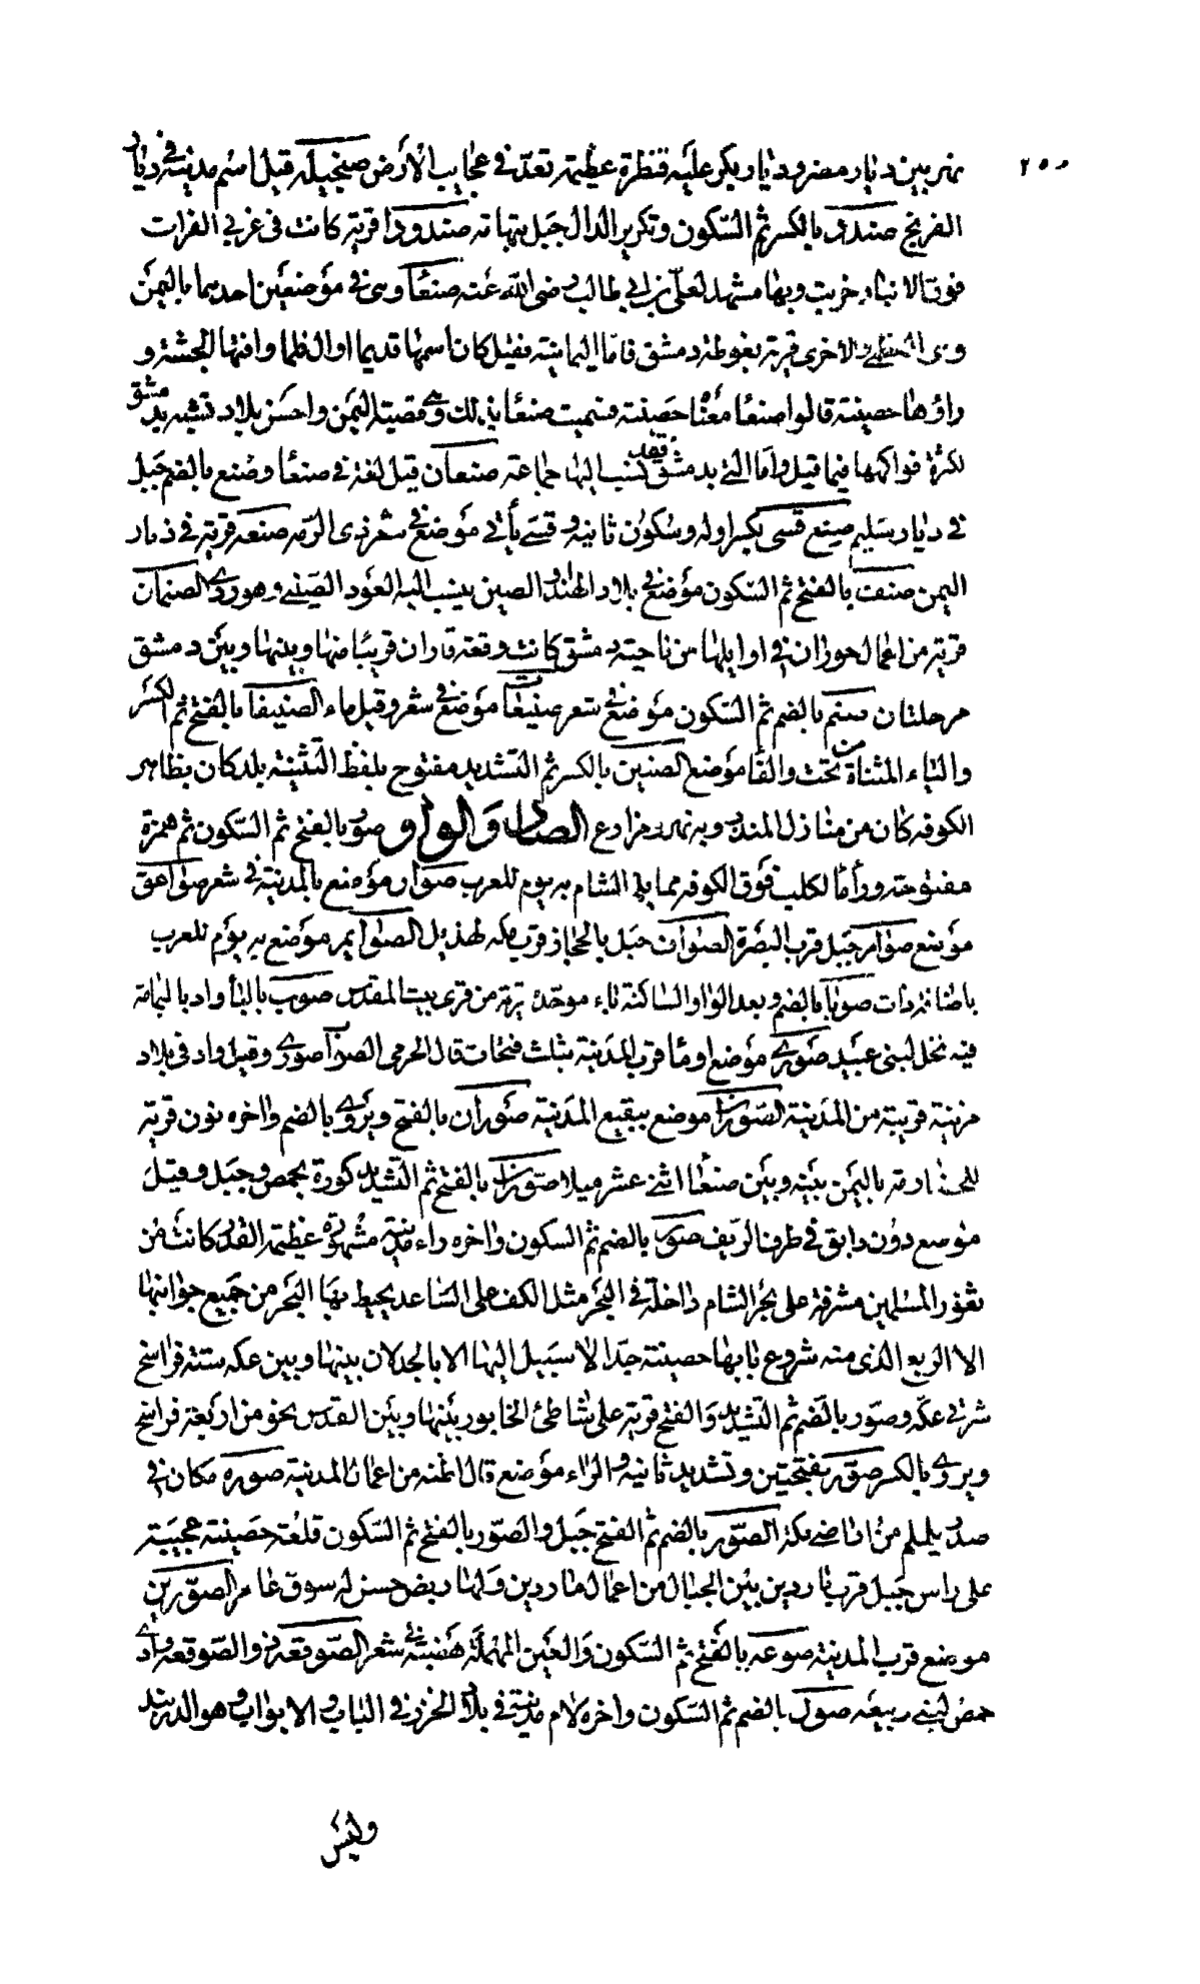 ٢٥٠
نهر بين ديار مضر وديار بكر عليه قنطرة عظيمة تعد في عجايب الارض صنجيلة قيل اسم مدينة في ديار
الفرنج صندد بالكسر ثم السكون وتكرير الدال جبل بتهامة صندودا قرية كانت في غربي الفرات
فوق الانبار خربت وبها مشهد لعلي بن ابي طالب رضي الله عنه صنعا وهي في موضعين احديهما باليمن
وهي العظمى والاخرى قرية بغوطة دمشق فاما اليمانية فقيل كان اسمها قديما اوال فلما وافتها الحبشة و
راؤها حصينة قالوا صنعا معنا حصينة فسميت صنعا بذلك وهي قصبة اليمن واحسن بلاد تشبه بدمشق
لكثرة فواكهها فيما قيل واما التي بدمشق فقد نسب اليها جماعة صنعان قيل لغة في صنعا وصنع بالضم جبل
في ديار سليم صنع قسى بكسر اوله وسكون ثانيه وقسى يأتي موضع في شعر ذي الرمة صنعه قرية في ذمار
اليمن صنف بالفتح ثم السكون موضع في بلاد الهند والصين ينسب اليه العود الصنفي وهو ردى الصنمان
قرية من اعمال حوران في اوايلها من ناحية دمشق كانت وقعة قاوان قريبا منها وبينها وبين دمشق
مرحلتان صنم بالضم ثم السكون موضع في شعر صنيبعات موضع في شعر وقيل ماء الصنيفا بالفتح ثم الكسر
والياء المثناة من تحت والفا موضع الصنين بالكسر ثم التشديد مفتوح بلفظ التثنية بلد كان بظاهر
الكوفة كان من منازل المنذر وبه نهر ومزارع الصاد والواو صور بالفتح ثم السكون ثم همزة
مفتوحة وراء ما لكلب فوق الكوفة مما يلي الشام به يوم للعرب صوار موضع بالمدينة في شعر صواعق
موضع صوام جبل قرب البصرة الصوان جبل بالحجاز قرب مكة لهذيل الصوايم موضع به يوم للعرب
باصا نزدات صوبا بالضم وبعد الواو الساكنة باء موحدة قرية من قرى بيت المقدس صوب بالباء واد باليمامة
فيه نخل لبني عبيد صورى موضع او ماء قرب المدينة بثلث فتحات قال الجرمي الصواب صورى وقيل واد في بلاد
مزينة قريبة من المدينة الصورا موضع ببقيع المدينة صوران بالفتح ويروى بالضم واخره نون قرية
للحضارمة باليمن بينه وبين صنعا اثنى عشر ميلا صوران بالفتح ثم التشديد كورة بحمص وجبل وقيل
موضع دون دابق في طرف الريف صور بالضم ثم السكون واخره راء مدينة مشهورة عظيمة القدر كانت من
ثغور المسلمين مشرفة على بحر الشام داخلة في البحر مثل الكف على الساعد يحيط بها البحر من جميع جوانبها
الا الربع الذي منه شروع بابها حصينة جدا لا سبيل اليها الا بالجدلان بينها وبين عكه ستة فراسخ
شرقي عكه وصور بالضم ثم التشديد والفتح قرية على شاطئ الخابور بينها وبين القدس نحو من اربعة فراسخ
ويروى بالكسر صور بفتحتين وتشديد ثانيه والراء موضع قال اظنه من اعمال المدينة صوره مكان في
صدر يلملم من اراضي مكة الصور بالضم ثم الفتح جبل والصور بالفتح ثم السكون قلعة حصينة عجيبة
على راس جبل قرب ماردين بين الجبال من اعمال ماردين ولها ربض حسن له سوق عامر الصورين
موضع قرب المدينة صوعه بالفتح ثم السكون والعين المهملة هضبة في شعر الصوقعه والصوقعه وادي
حمض لبني ربيعه صول بالضم ثم السكون واخره لام مدينة في بلاد الخزر في الباب والابواب وهو الدربند
وليس